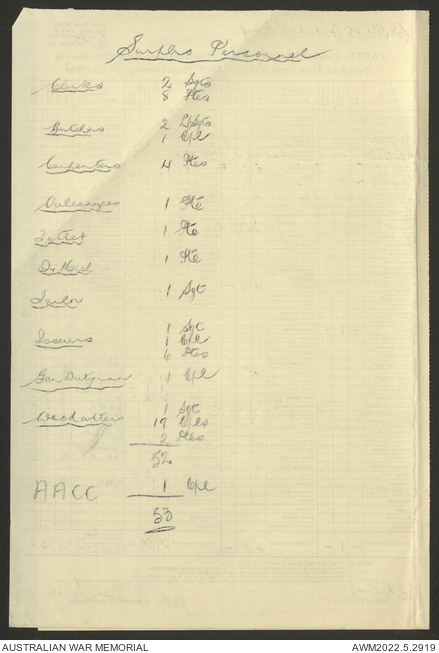 Surplus Personnel
Clerks 2 Sgts
8 Ptes
Butchers 2 L/Sgts
1 Cpl
Carpenters 4 Ptes
Vulcanizers 1 Pte
Fitter 1 Pte
D. Mech 1 Pte
Tailor 1 Sgt
Issuers 1 Sgt
1 Cpl
6 Ptes
Gen Dutyman 1 Cpl
1 Sgt
19 Cpls
2 Ptes
52
AACC 1 Cpl
53
AUSTRALIAN WAR MEMORIAL AWM2022.5.2919